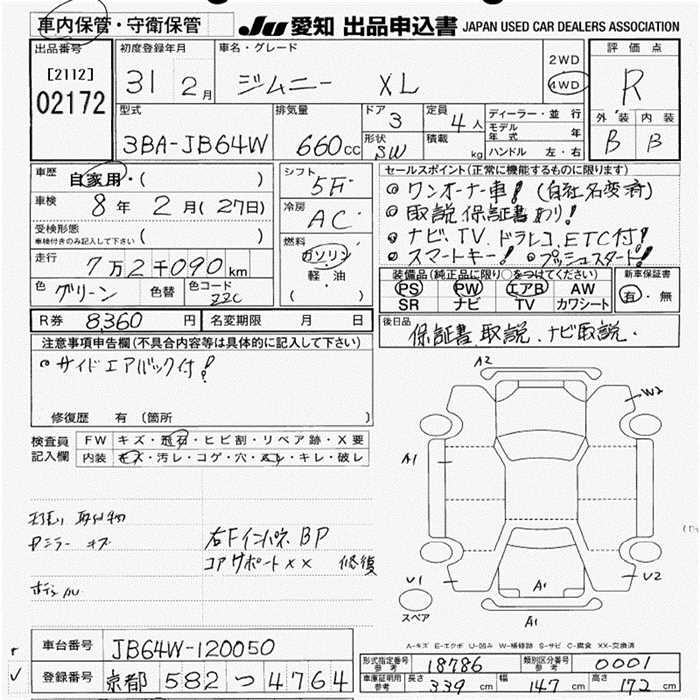 車内保管・守衛保管
JU 愛知 出品申込書 JAPAN USED CAR DEALERS ASSOCIATION
出品番号
[2112]
02172
初度登録年月
31 2月
車名・グレード
ジムニー XL
2WD
4WD
評価点
R
外装 内装
B B
型式
3BA-JB64W
排気量
660cc
ドア
3
形状
SW
定員
4人
積載
kg
ディーラー・並行
モデル年式 年
ハンドル 左・右
車歴
自家用・( )
車検
8年 2月(27日)
受検形態
車検付きのみ記入して下さい ( )
走行
7万2千090km
色 グリーン 色替 色コード ZZC
シフト
5F
冷房
AC
燃料
ガソリン
軽・油
( )
セールスポイント(正常に機能するものに限ります)
◎ワンオーナー車! (自社名変済)
◎取説 保証書あり!
◎ナビ、TV、ドラレコ、ETC付!
◎スマートキー! ◎プッシュスタート!
装備品(純正品に限り○をつけてください)
PS PW エアB AW
SR ナビ TV カワシート
新車保証書
有・無
R券 8,360円 名変期限 月 日
後日品
保証書、取説、ナビ取説.
注意事項申告欄(不具合内容等は具体的に記入して下さい)
◎サイドエアバック付!
修復歴 有(箇所
検査員
記入欄
FW キズ・飛石・ヒビ割・リペア跡・X要
内装 キズ・汚レ・コゲ・穴・スレ・キレ・破レ
取付物
ミラー キズ
右Fインパネ BP
コアサポート×× 修復
A2
W2
A1
U1
A1
U2
スペア
A1
A-キズ E-エクボ U-凹み W-補修跡 S-サビ C-腐食 XX-交換済
車台番号 JB64W-120050
登録番号 京都 582 つ 4764
形式指定番号 参考 18786 類別区分番号 参考 0001
車庫証明用 参考 長さ 339cm 幅 147cm 高さ 172cm